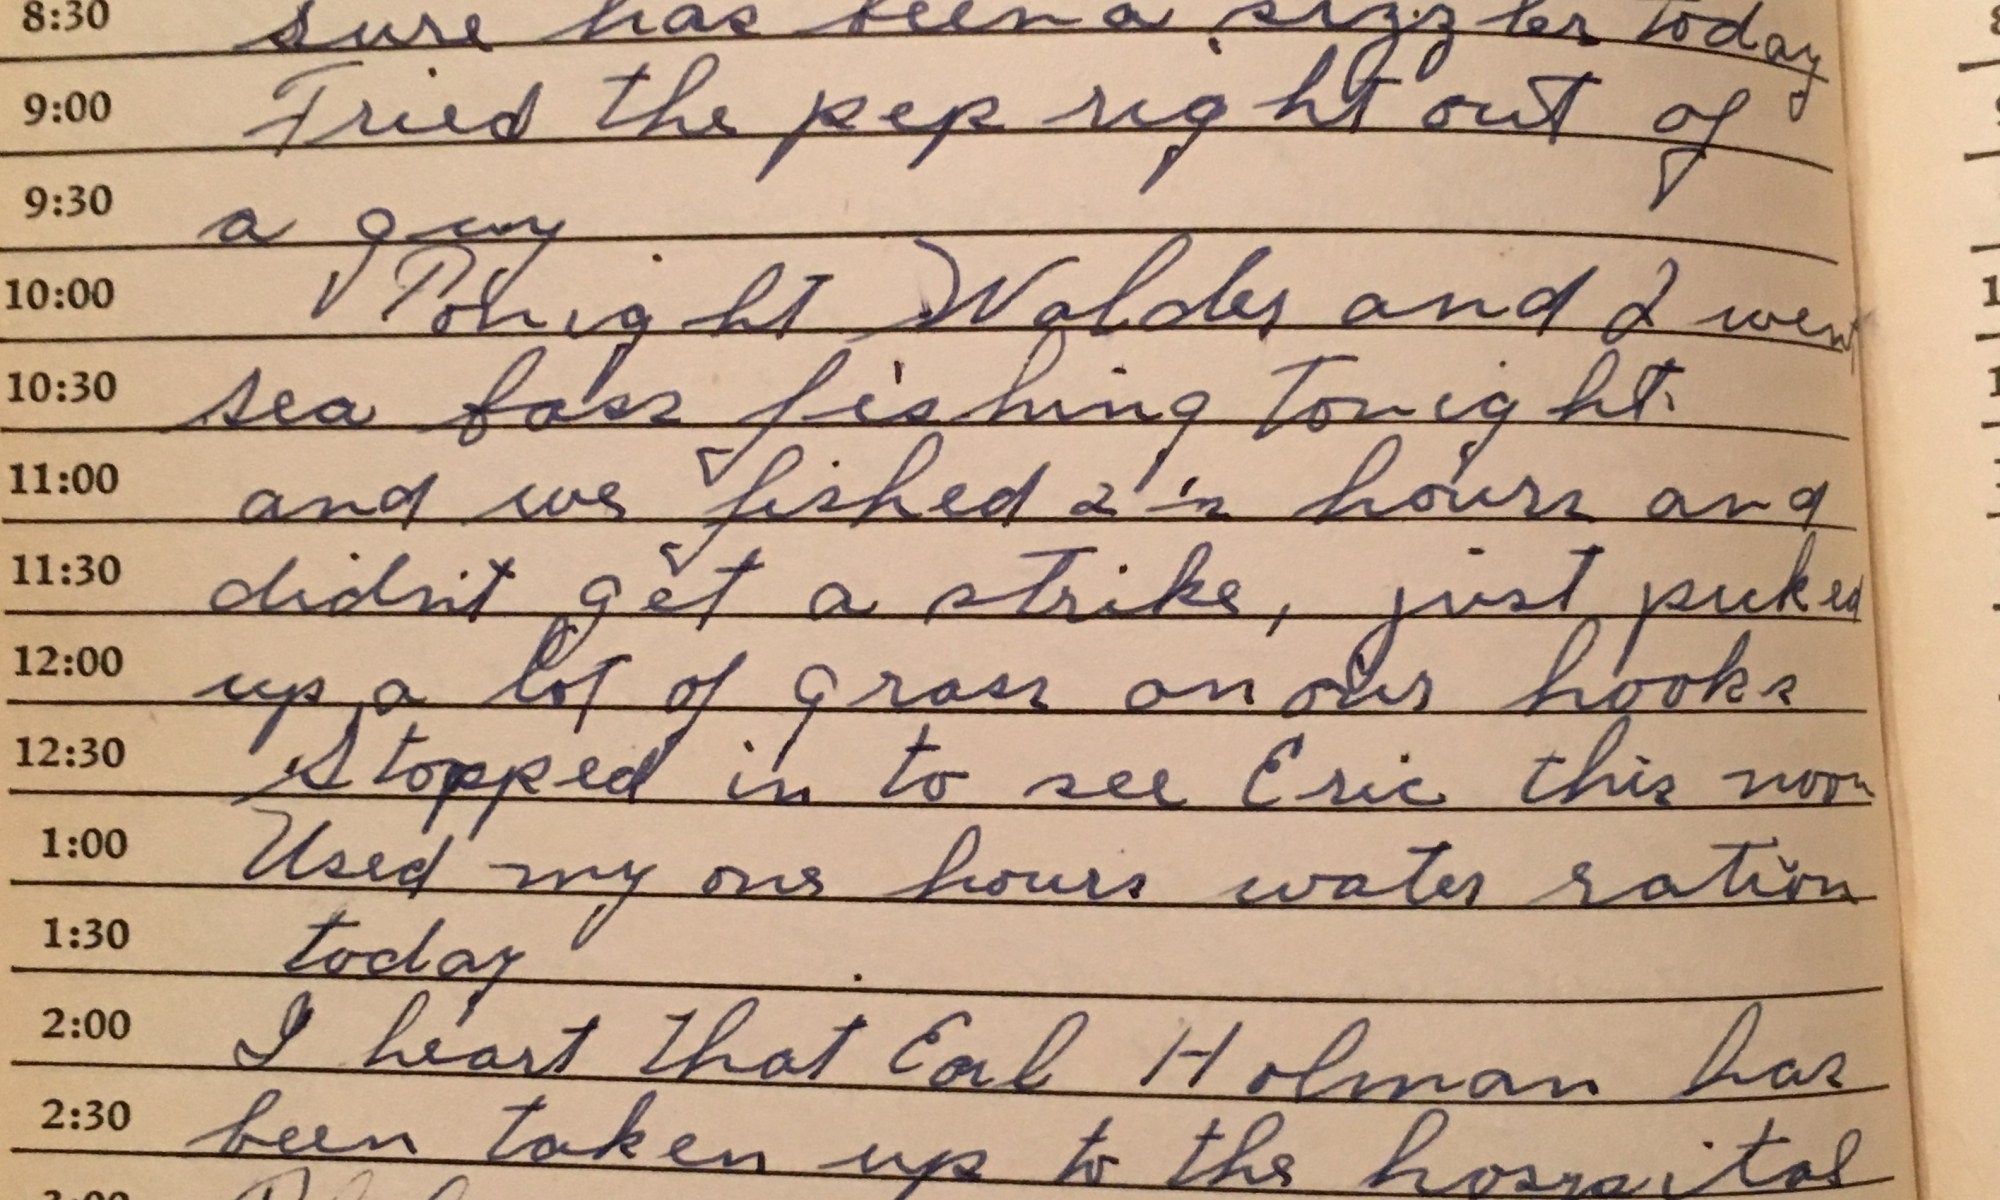 8:30 sure has been a sizzler today
9:00 Fried the pep right out of
9:30 a guy
10:00 Tonight Walder and I went
10:30 sea bass fishing tonight.
11:00 and we fished 2 1/2 hours and
11:30 didn't get a strike, just puked
12:00 up a lot of grass on our hooks
12:30 Stopped in to see Eric this noon
1:00 Used my one hours water ration
1:30 today
2:00 I heart that Earl Holman has
2:30 been taken up to the hospital
3:00